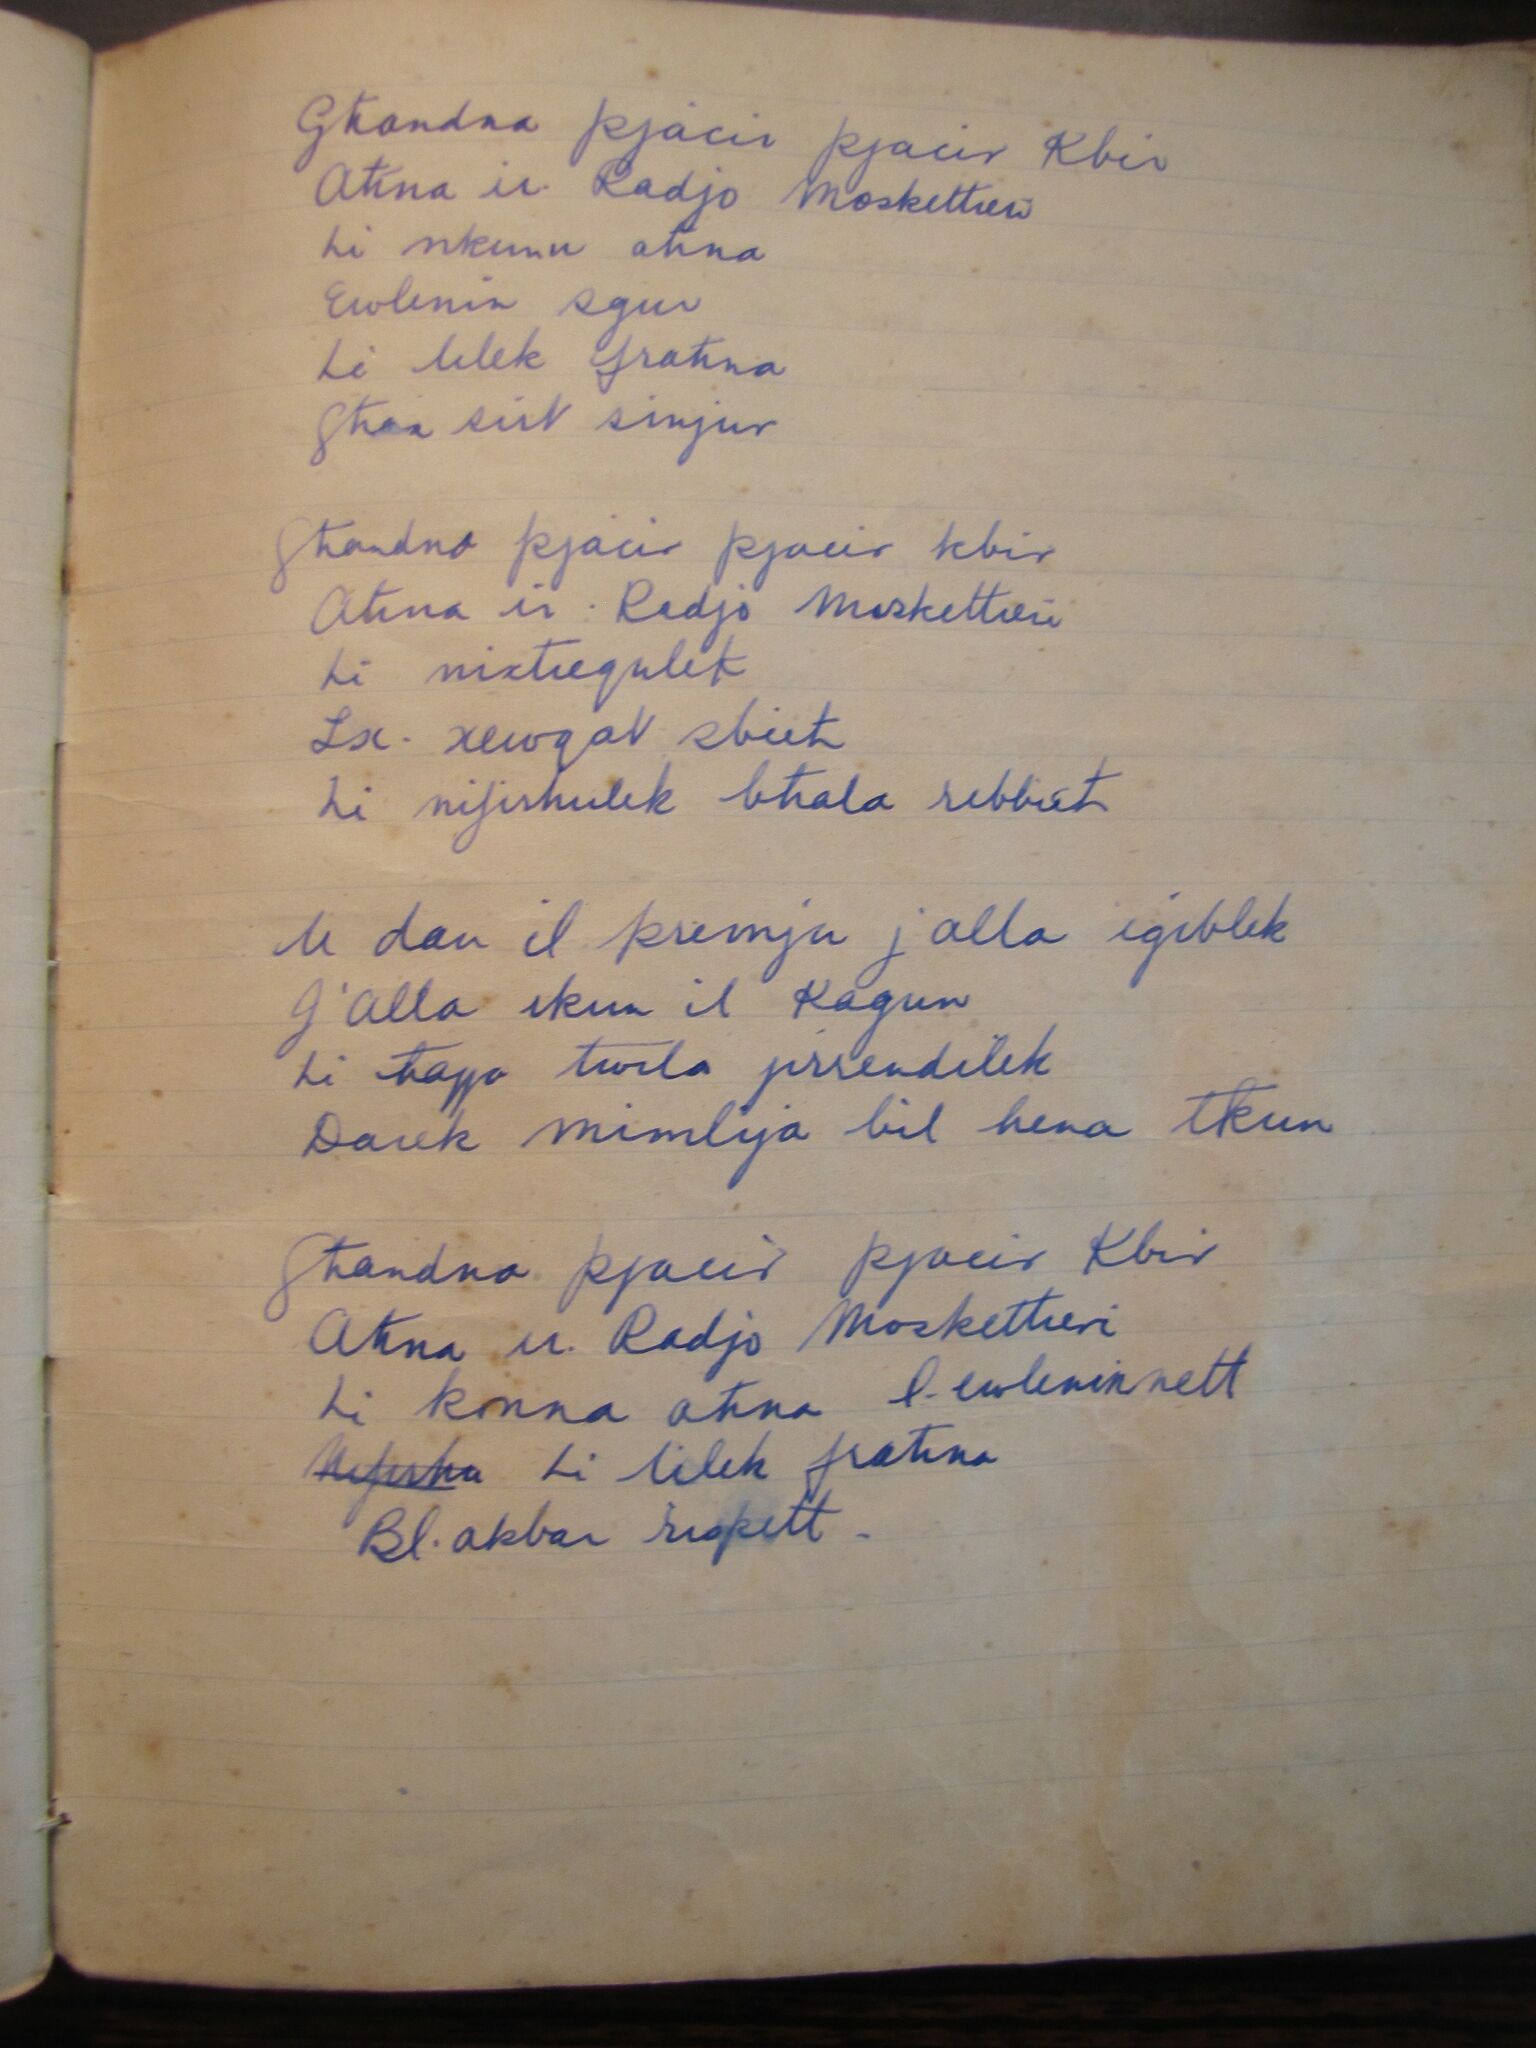 Għandna pjacir pjacir Kbir
Aħna ir. Radjo Moskettieri
Li nkunu aħna
Ewlenin sgur
Li lilek fraħna
Għan sist sinjur
Għandna pjacir pjacir kbir
Aħna ir. Radjo Moskettieri
Li nixtiequlek
Ix. xewqat sbieħ
Li nifirhulek bħala rebbieħ
U dan il premju j'alla igiblek
J'Alla ikun il Kagun
Li ħajja twila jirrendilek
Darek mimlija bil hena tkun
Għandna pjacir pjacir Kbir
Aħna ir. Radjo Moskettieri
Li konna aħna l-ewlenin nett
Li lilek fraħna
Bl. akbar rispett -